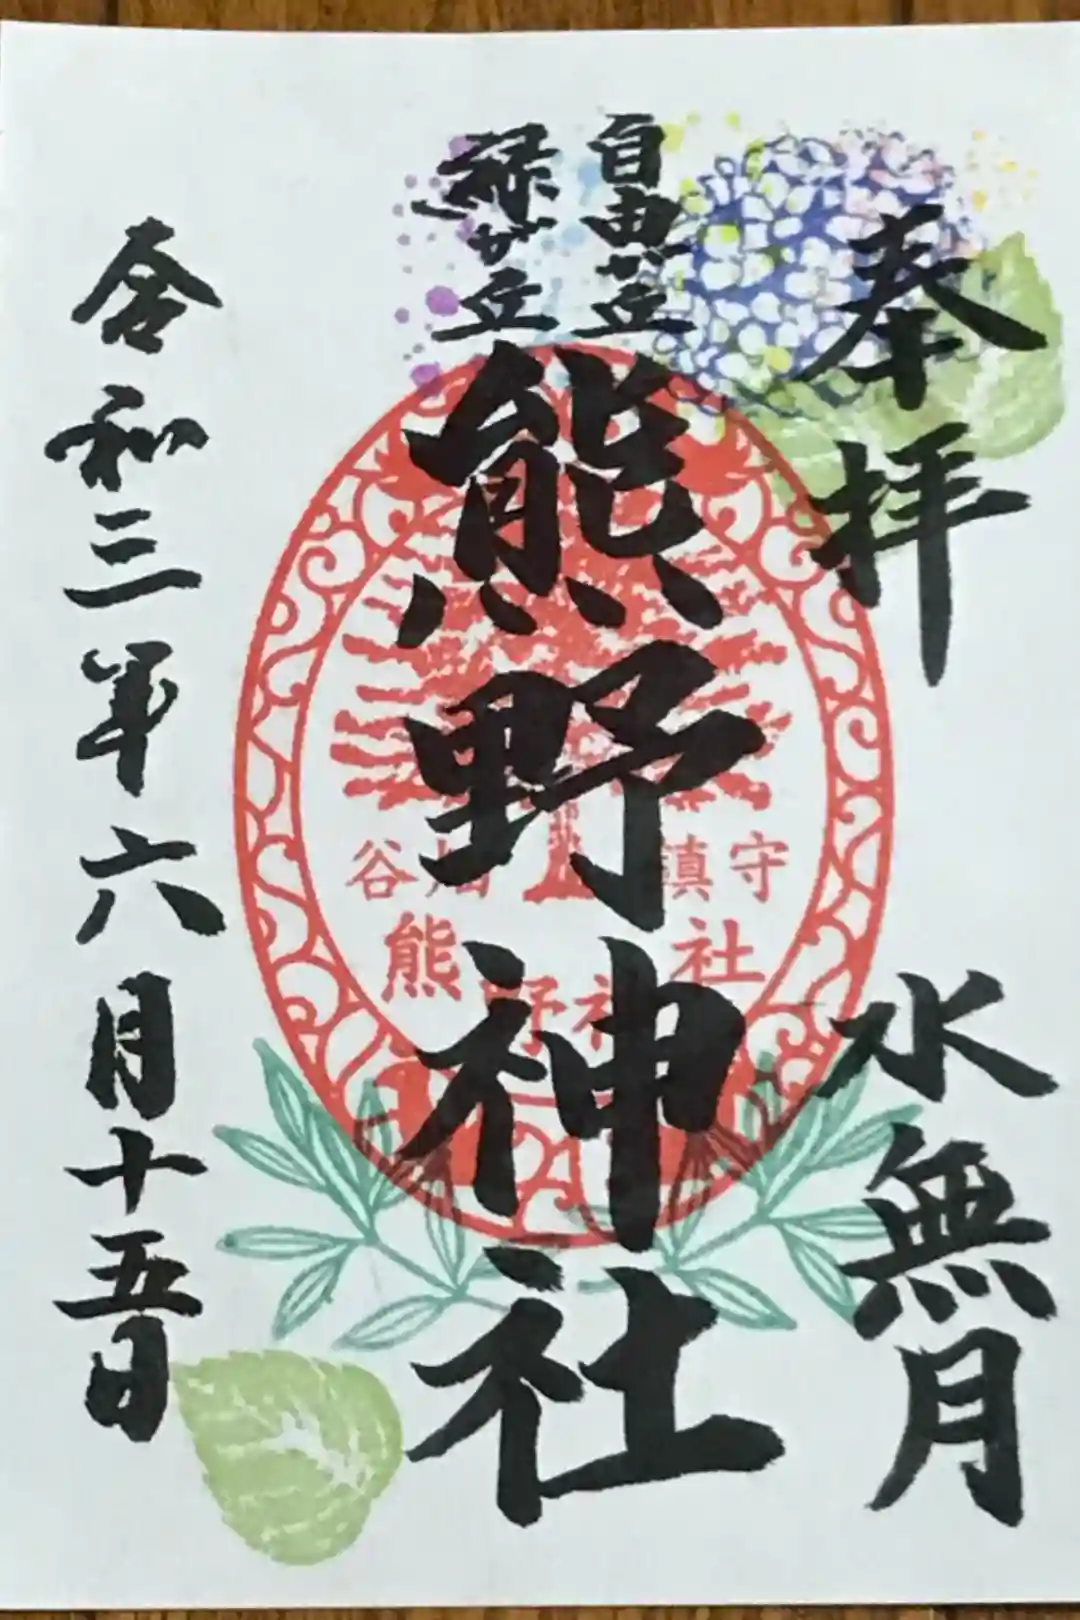 奉拝
水無月
自由が丘
緑が丘
熊野神社
谷畑
鎮守
熊野神社
令和三年六月十五日